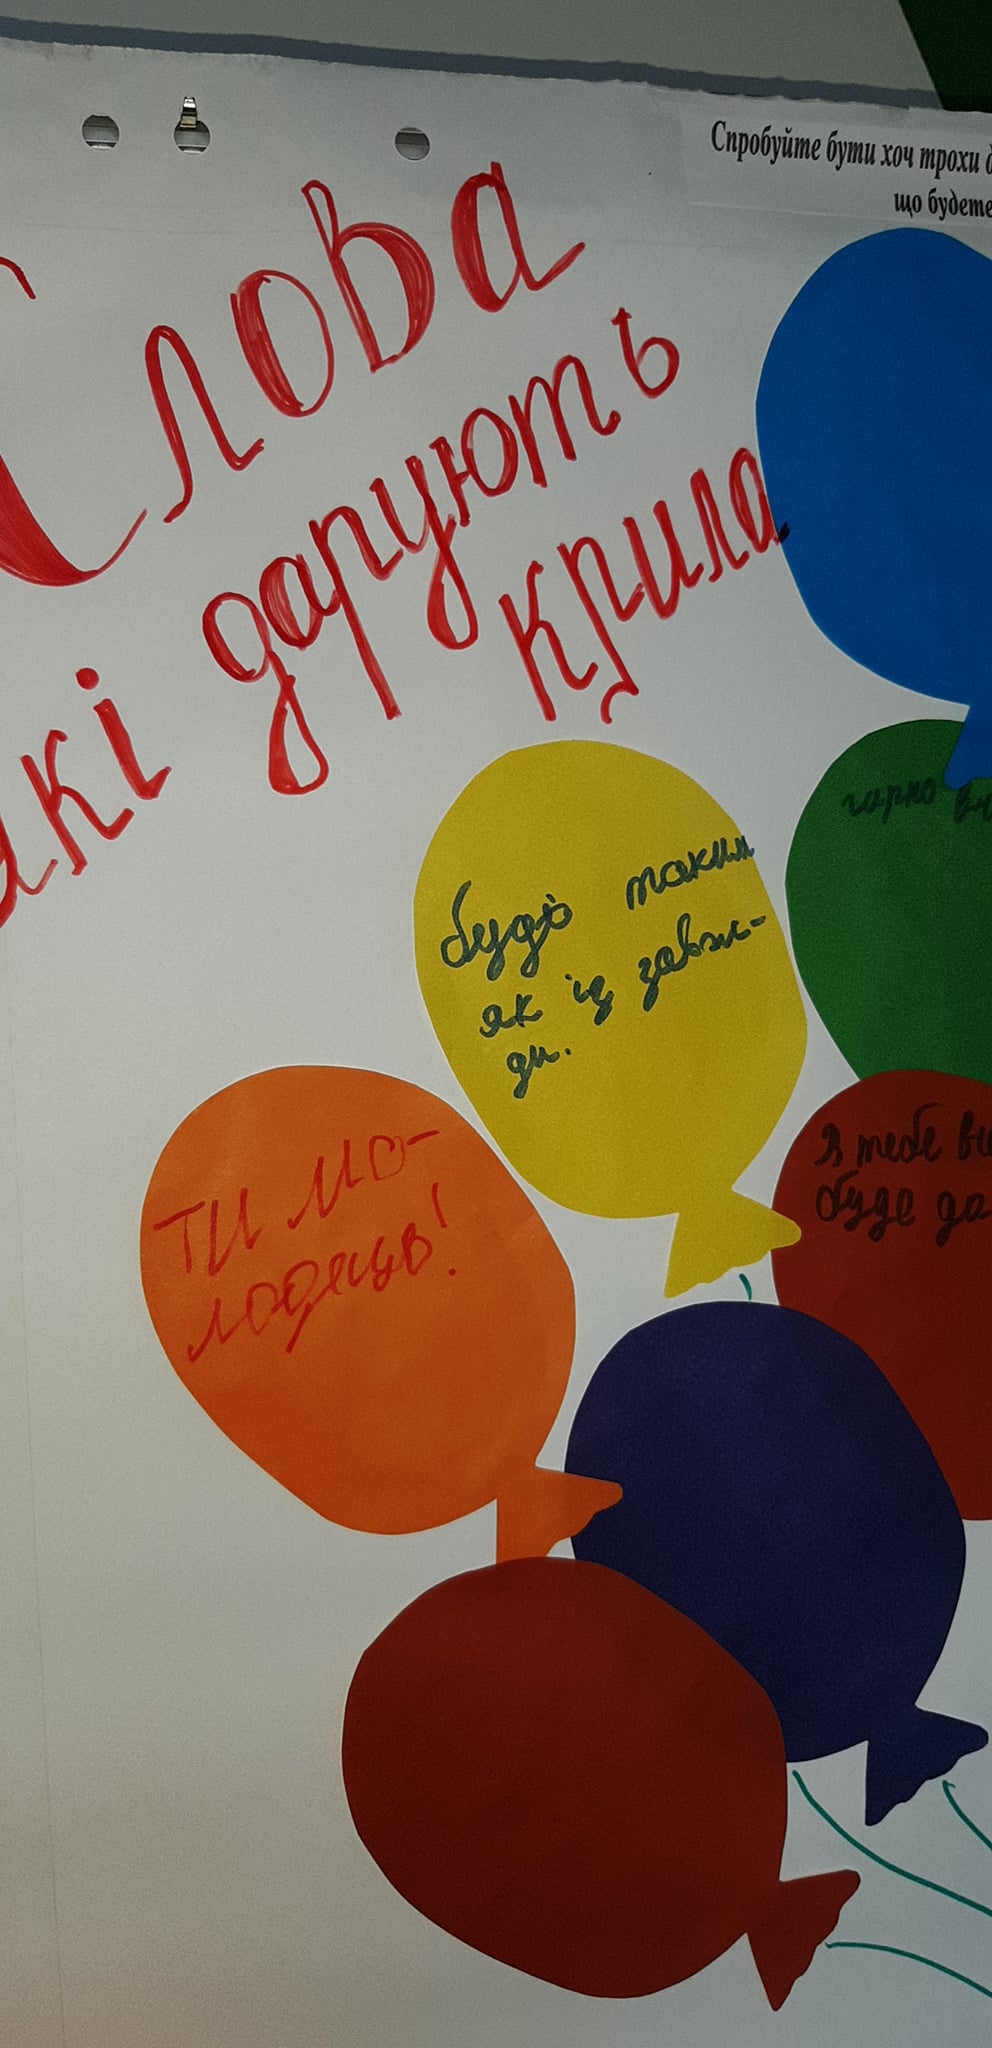 Спробуйте бути хоч трохи
що будете
Слова
які дарують
крила
гарно
будь таким
як і завж-
ди.
Я тебе
буде
ТИ МО-
лодець!